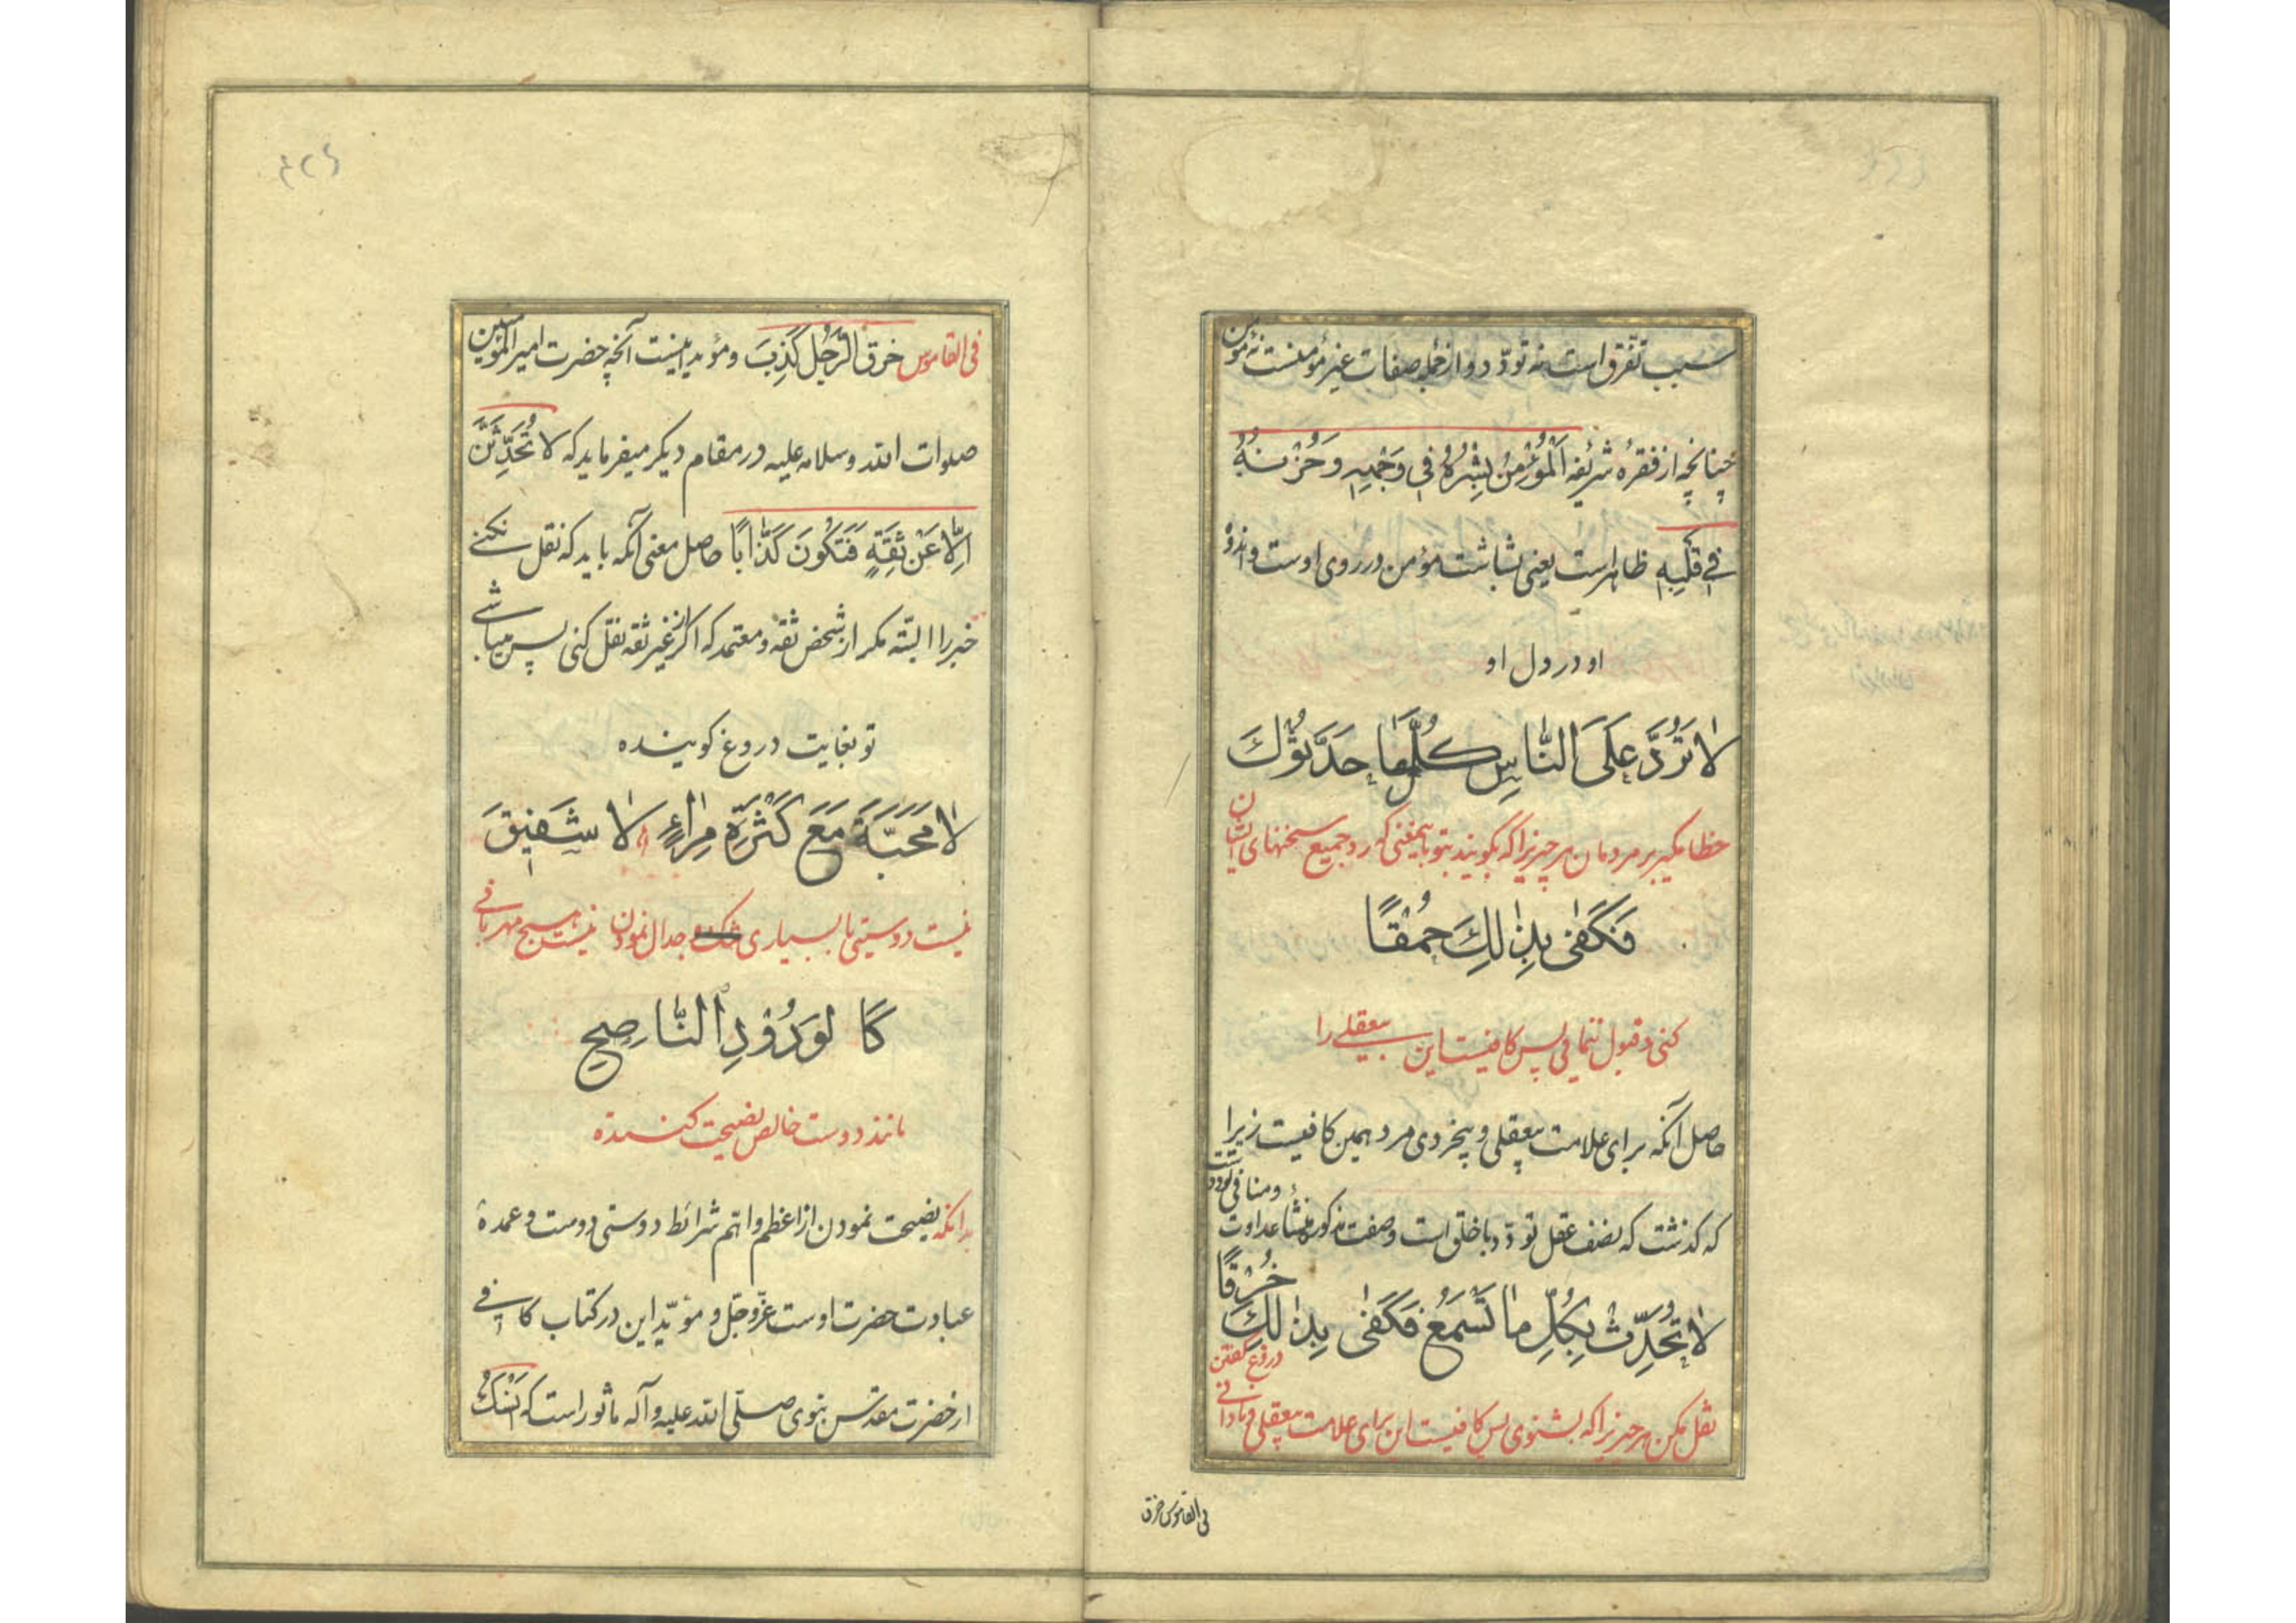 سبب تفرق است نه تودد و از جمله صفات غیر مؤمنست نه مؤمن
چنانچه از فقره شریفه اَلْمُؤْمِنُ بِشْرُهُ فی وَجْهِهِ وَحُزْنُهُ
فی قَلْبِهِ ظاهر است یعنی بشاشت مؤمن در روی اوست و اندوه
او در دل او
لا تَرُدَّ عَلَی النّاسِ کُلَّما حَدَّثُوْكَ
خطا مگیر بر مردمان هر چیز را که بگویند بتو باینمعنی که رد جمیع سخنهای ایشان
فَکَفیٰ بِذٰلِكَ حُمْقًا
کنی و قبول ننمائی پس کافیست این بیعقلی را
حاصل آنکه برای علامت بیعقلی و بیخردی مرد همین کافیست زیرا
که گذشت که نصف عقل تودد با خلق است و صفت مذکور منشأ عداوت
و منافی تودد است
لا تُحَدِّثْ بِکُلِّ ما تَسْمَعُ فَکَفیٰ بِذٰلِكَ خُرْقًا
نقل مکن هر چیز را که بشنوی پس کافیست این برای علامت بیعقلی و نادانی
دروغ گفتن
فی القاموس خرق
فی القاموس خرق الرَّجُل کَذِبَ و مؤید اینست آنچه حضرت امیر المؤمنین
صلوات الله وسلامه علیه در مقام دیگر میفرماید که لا تُحَدِّثَنَّ
اِلّا عَنْ ثِقَةٍ فَتَکُونَ کَذّابًا حاصل معنی آنکه باید که نقل نکنی
خبر را البتّه مگر از شخص ثقه و معتمد که اگر از غیر ثقه نقل کنی پس میباشی
تو بغایت دروغ گوینده
لا مَحَبَّةَ مَعَ کَثْرَةِ مِراءٍ لا شَفِیْقَ
نیست دوستی با بسیاری جدال نمودن نیست هیچ مهربانی
کَا لوَدُوْدِ النّاصِحِ
مانند دوست خالص نصیحت کننده
بدانکه نصیحت نمودن از اعظم و اتم شرائط دوستی دوست و عمده
عبادت حضرت اوست عزّوجلّ و مؤیّد این در کتاب کافی
از حضرت مقدس نبوی صلّی الله علیه وآله مأثور است که اَنْسَكُ